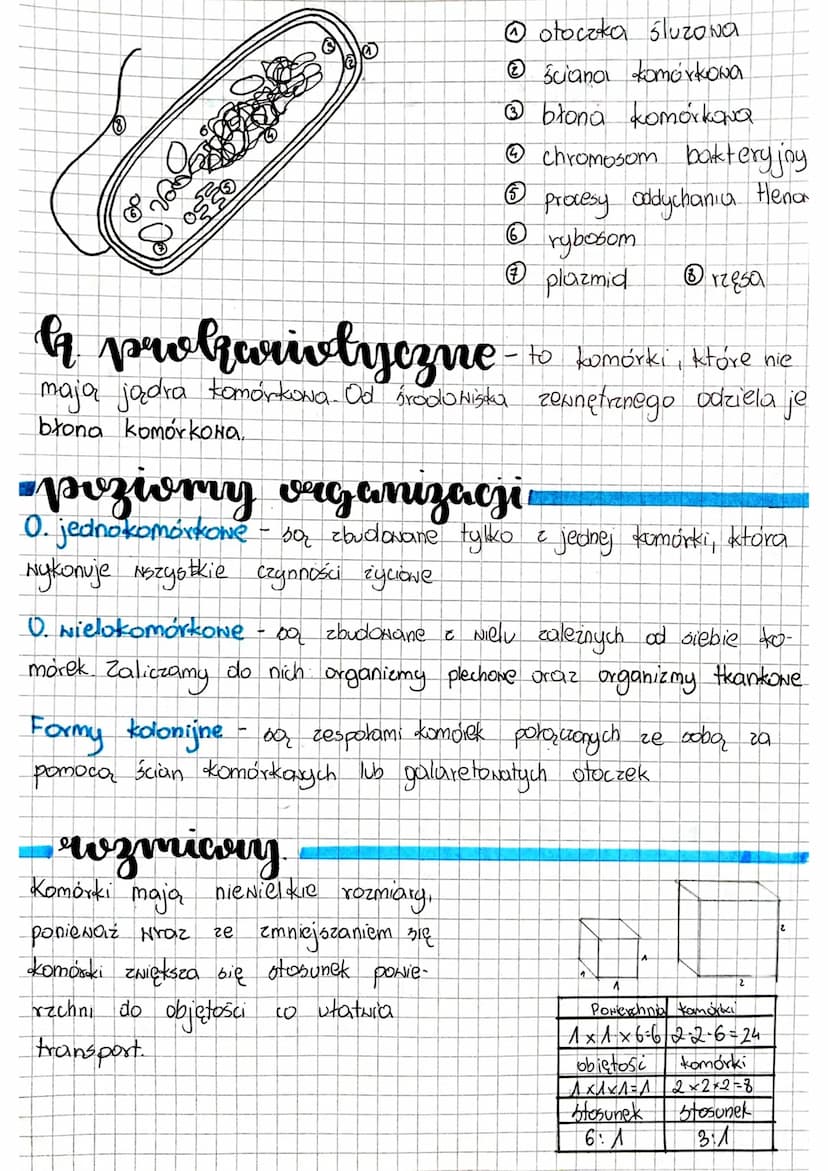 ① otoczka śluzowa
② ściana komórkowa
③ błona komórkowa
④ chromosom bakteryjny
⑤ procesy oddychania tleno
⑥ rybosom
⑦ plazmid ⑧ rzęsa
③ ② ①
⑧
④
⑥ ⑤
⑦
k. prokariotyczne - to komórki, które nie
mają jądra komórkowa. Od środowiska zewnętrznego odziela je
błona komórkowa.
poziomy organizacji
O. jednokomórkowe - są zbudowane tylko z jednej komórki, która
wykonuje wszystkie czynności życiowe
O. wielokomórkowe - są zbudowane z wielu zależnych od siebie ko-
mórek. Zaliczamy do nich organizmy plechowe oraz organizmy tkankowe
Formy kolonijne - są zespołami komórek połączonych ze sobą za
pomocą ścian komórkowych lub galaretowatych otoczek
rozmiary.
Komórki mają niewielkie rozmiary,
ponieważ wraz ze zmniejszaniem się
komórki zwiększa się stosunek powie-
rzchni do objętości co ułatwia
transport.
1 1 1
2 2
Powierzchnia komórki
1x1x6=6 2·2·6=24
objętość komórki
1x1x1=1 2x2x2=8
stosunek stosunek
6:1 3:1